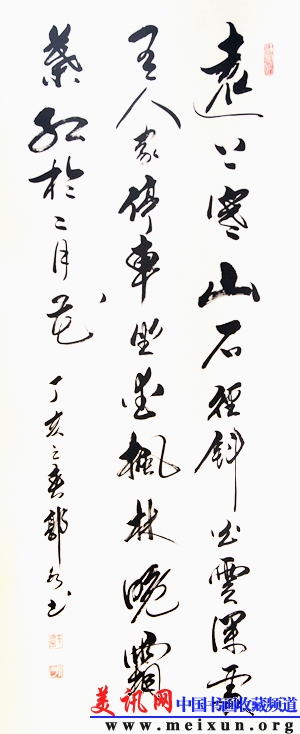 遠上寒山石徑斜白雲深處
有人家停車坐愛楓林晚霜
葉紅於二月花
丁亥之春鄭書
美讯网 中国书画收藏频道
www.meixun.org